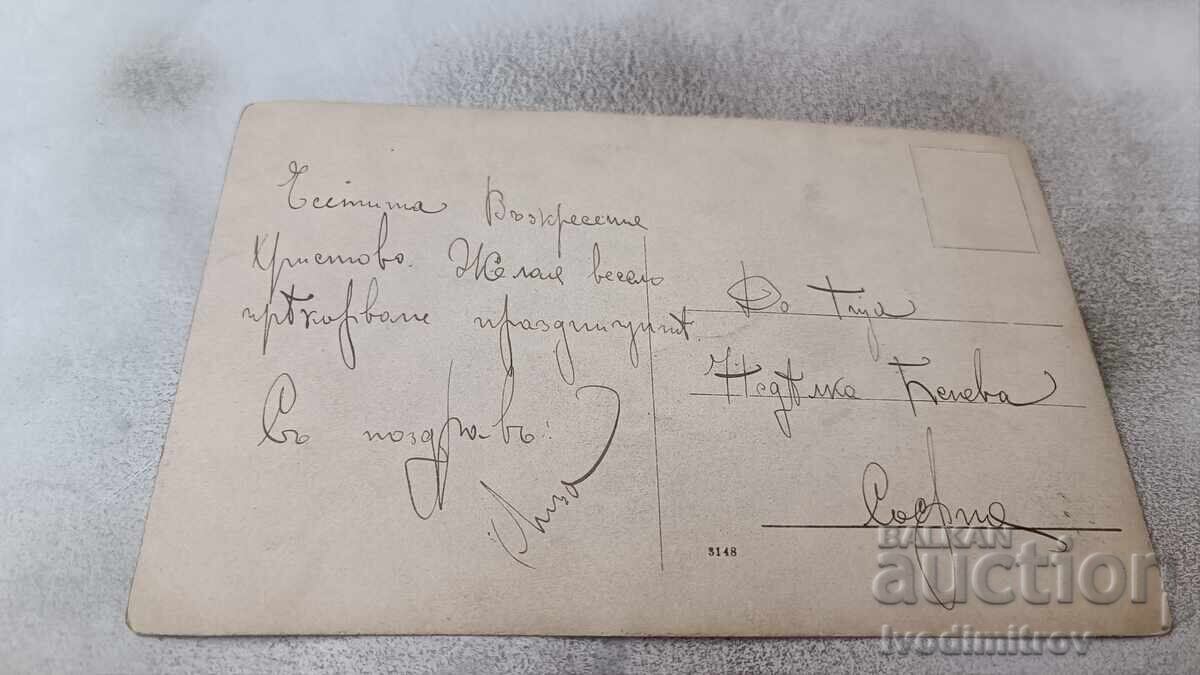 Честита Възкресение
Христово. Желая весело
прѣкарване празницитѣ.
Съ поздравъ:
Лиза
До Г-ца
Недѣлка Бенева
София
3148
BALKAN
auction
Ivodimitrov